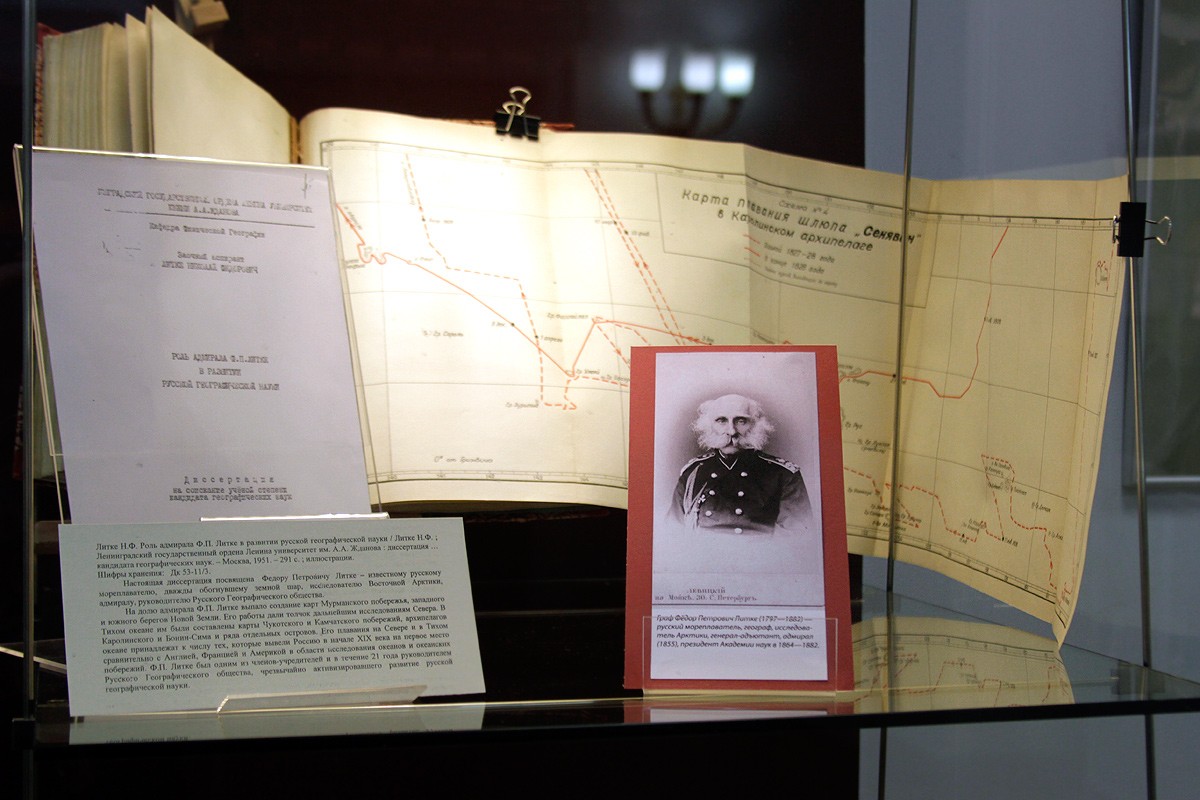 ЛЕНИНГРАДСКИЙ ГОСУДАРСТВЕННЫЙ ОРДЕНА ЛЕНИНА УНИВЕРСИТЕТ
ИМЕНИ А.А.ЖДАНОВА
Кафедра Физической Географии
Заочный аспирант
ЛИТКЕ НИКОЛАЙ ФЕДОРОВИЧ
РОЛЬ АДМИРАЛА Ф.П.ЛИТКЕ
В РАЗВИТИИ
РУССКОЙ ГЕОГРАФИЧЕСКОЙ НАУКИ
Диссертация
на соискание учёной степени
кандидата географических наук
Литке Н.Ф. Роль адмирала Ф.П. Литке в развитии русской географической науки / Литке Н.Ф. ;
Ленинградский государственный ордена Ленина университет им. А.А. Жданова : диссертация ...
кандидата географических наук. – Москва, 1951. – 291 с. ; иллюстрации.
Шифры хранения: Дк 53-11/3.
Настоящая диссертация посвящена Федору Петровичу Литке – известному русскому
мореплавателю, дважды обогнувшему земной шар, исследователю Восточной Арктики,
адмиралу, руководителю Русского Географического общества.
На долю адмирала Ф.П. Литке выпало создание карт Мурманского побережья, западного
и южного берегов Новой Земли. Его работы дали толчок дальнейшим исследованиям Севера. В
Тихом океане им были составлены карты Чукотского и Камчатского побережий, архипелагов
Каролинского и Бонин-Сима и ряда отдельных островов. Его плавания на Севере и в Тихом
океане принадлежат к числу тех, которые вывели Россию в начале XIX века на первое место
сравнительно с Англией, Францией и Америкой в области исследования океанов и океанских
побережий. Ф.П. Литке был одним из членов-учредителей и в течение 21 года руководителем
Русского Географического общества, чрезвычайно активизировавшего развитие русской
географической науки.
Схема № 4
Карта плавания шлюпа „Сенявин"
в Каролинском архипелаге
ЛЕВИЦКІЙ
на Мойкѣ, 30. С. Петербургъ.
Граф Фёдор Петрович Литке (1797—1882) —
русский мореплаватель, географ, исследова-
тель Арктики, генерал-адъютант, адмирал
(1855), президент Академии наук в 1864—1882.